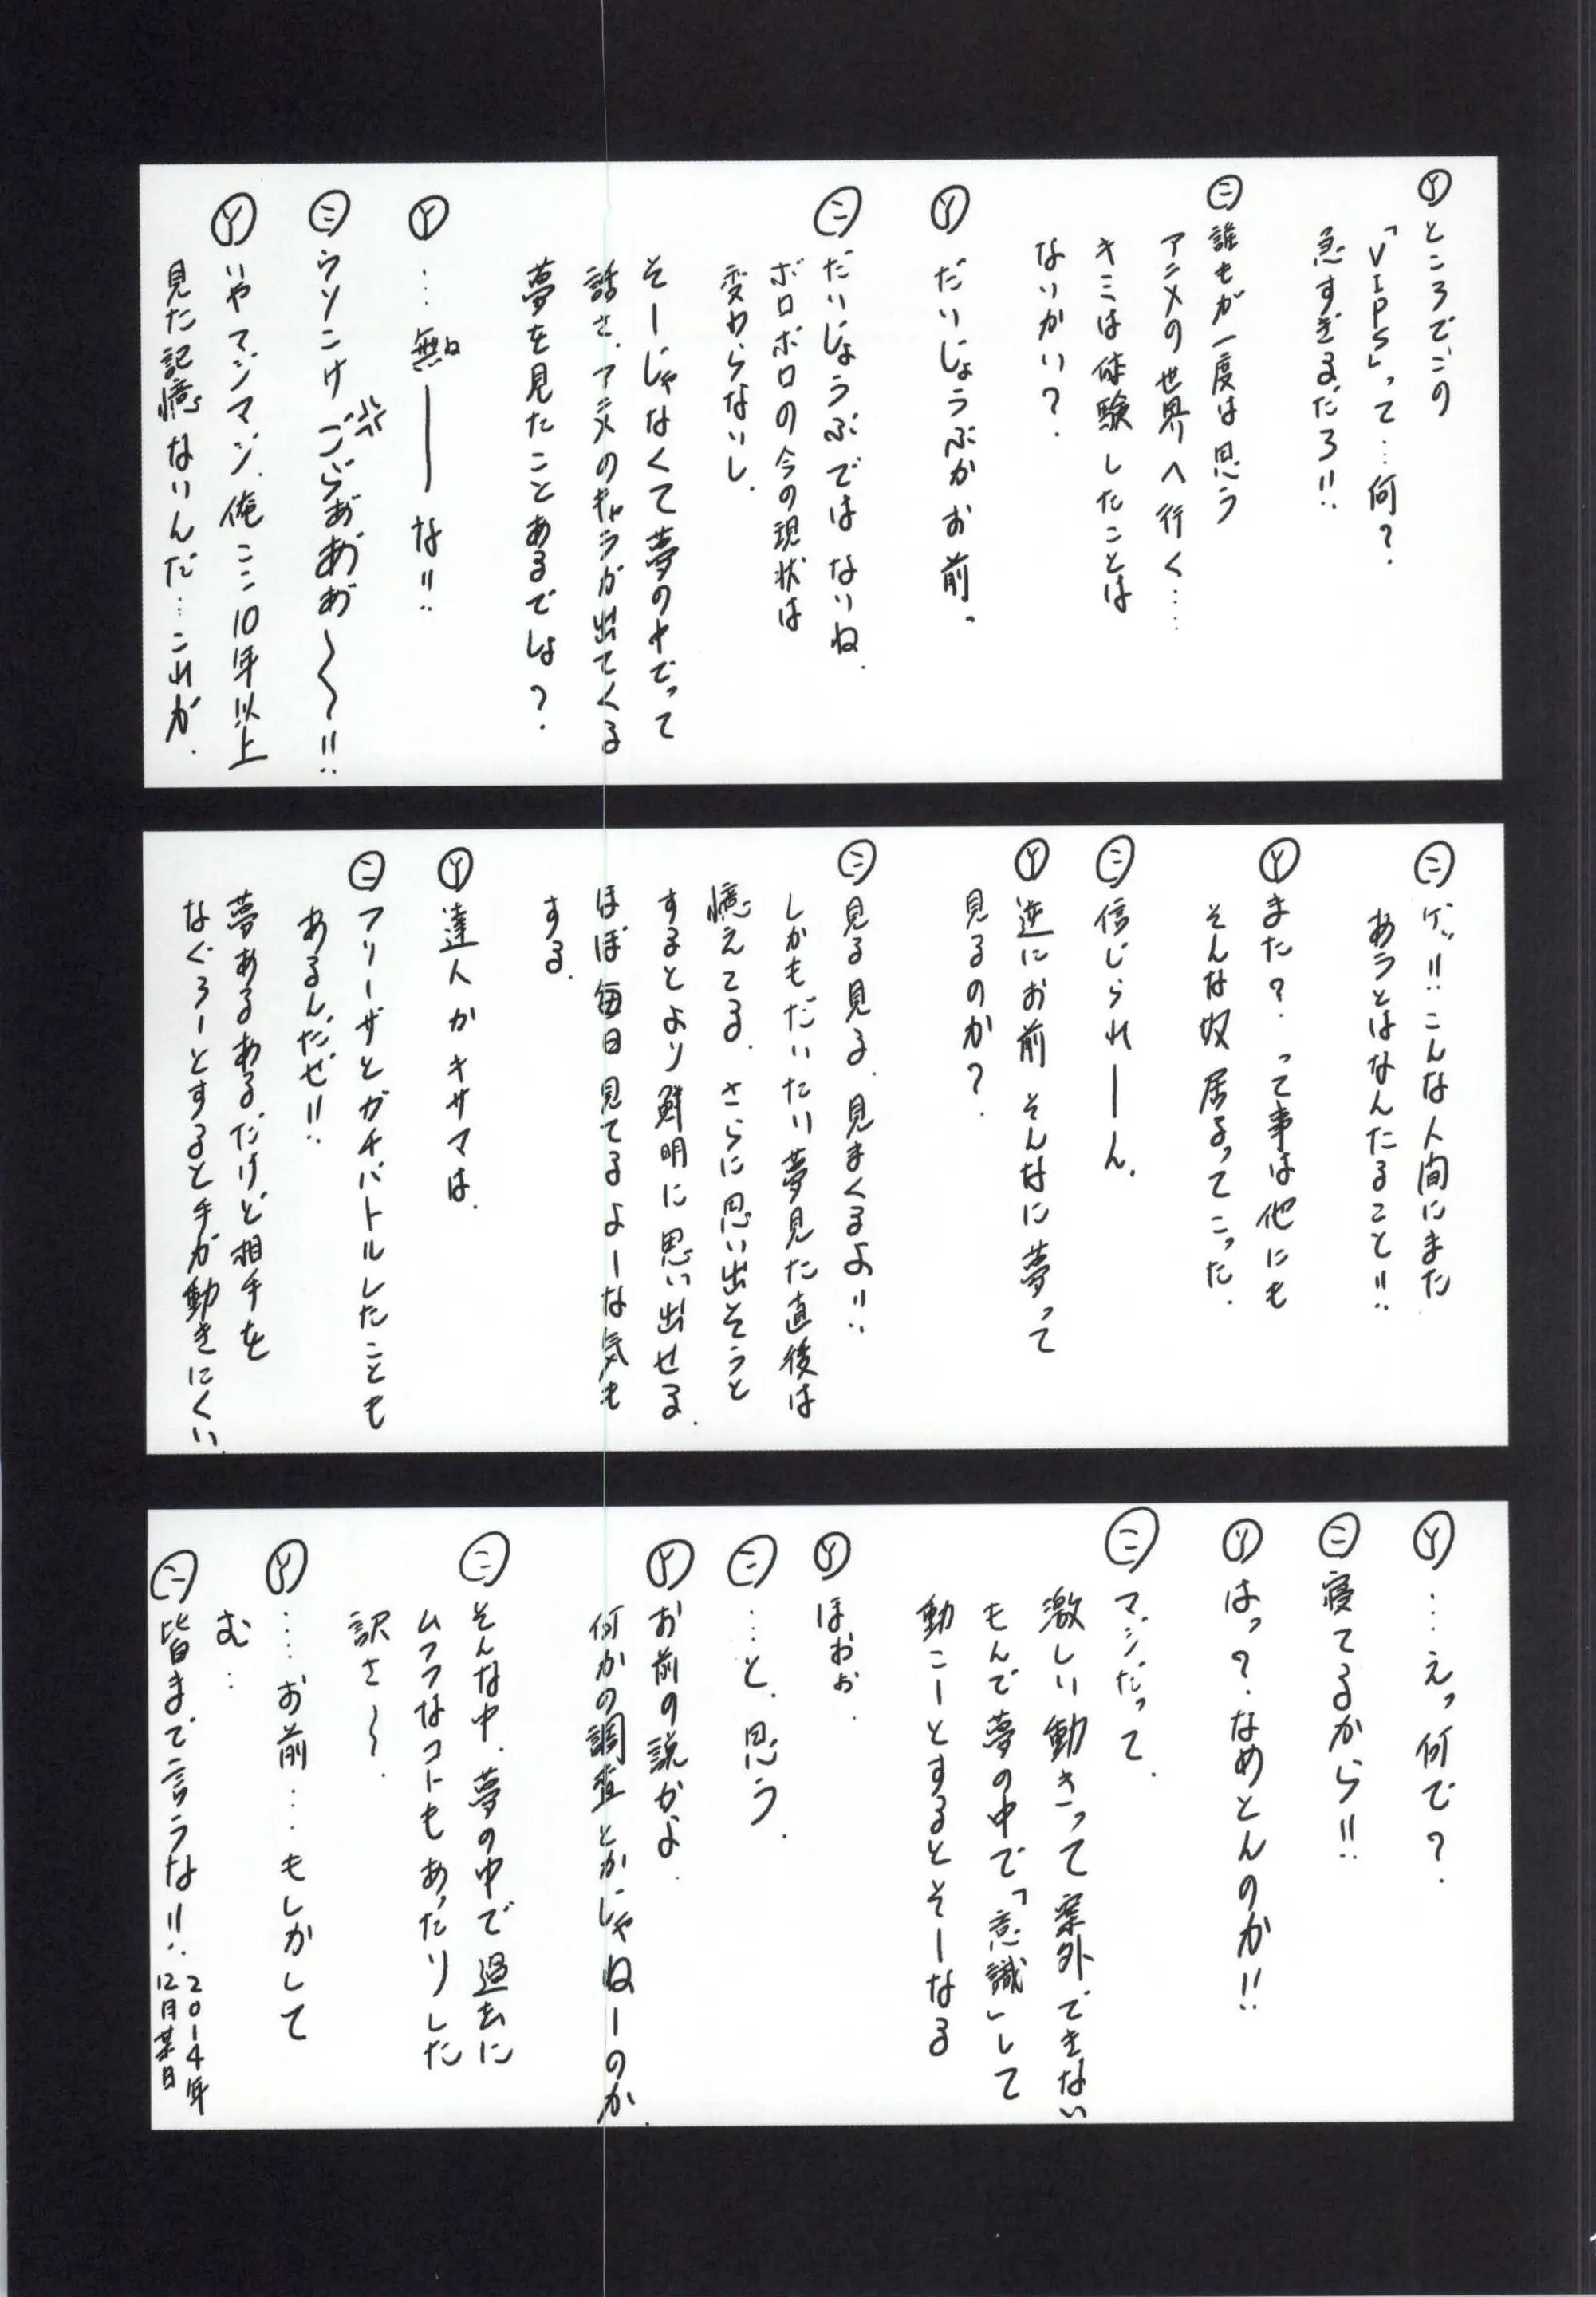 Ⓨところでこの
「VIPS」って…何？
急すぎるだろ!!
㊁誰もが一度は思う
アニメの世界へ行く……
キミは体験したことは
ないかい？
Ⓨだいじょうぶかお前。
㊁だいじょうぶではないね.
ボロボロの今の現状は
変わらないし.
そーじゃなくて夢の中でって
話さ.アニメのキャラが出てくる
夢を見たことあるでしょ？
Ⓨ…無――な!!
㊁ウソこけごらぁあぁ〜〜!!
Ⓨいやマジマジ.俺ここ10年以上
見た記憶ないんだ…これが.
㊁ゲッ!!こんな人間にまた
あうとはなんたること!!
Ⓨまた？って事は他にも
そんな奴居るってこった.
㊁信じられーーん.
Ⓨ逆にお前そんなに夢って
見るのか？
㊁見る見る.見まくるよ!!
しかもだいたい夢見た直後は
憶えてる.さらに思い出そうと
するとより鮮明に思い出せる.
ほぼ毎日見てるよーな気も
する.
Ⓨ達人かキサマは.
㊁フリーザとガチバトルしたことも
あるんだぜ!!
夢あるあるだけど相手を
なぐろーとすると手が動きにくい.
Ⓨ…えっ何で？
㊁寝てるから!!
Ⓨはっ？なめとんのか!!
㊁マジだって.
激しい動きって案外できない
もんで夢の中で「意識」して
動こーとするとそーなる
Ⓨほぉぉ.
㊁…と.思う.
Ⓨお前の説かよ.
何かの調査とかじゃねーのか.
㊁そんな中.夢の中で過去に
ムフフなコトもあったりした
訳さ〜.
Ⓨ……お前…もしかして
む…
㊁皆まで言うな!!
2014年
12月某日